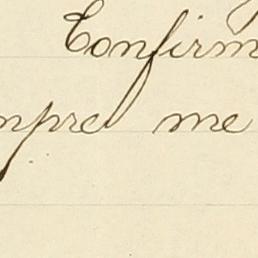 Confirm
mpre me